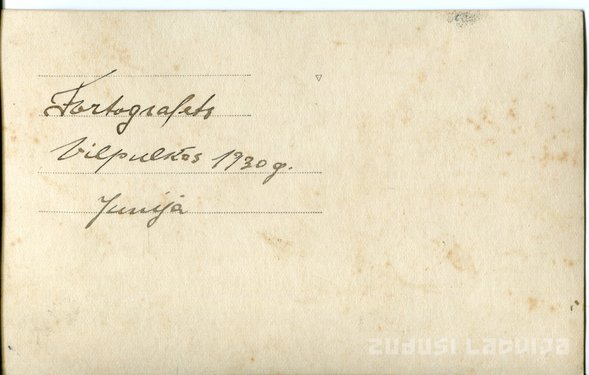 Fortografets
Vilpulkos 1930 g.
Junijā
ZUDUSI LATVIJA